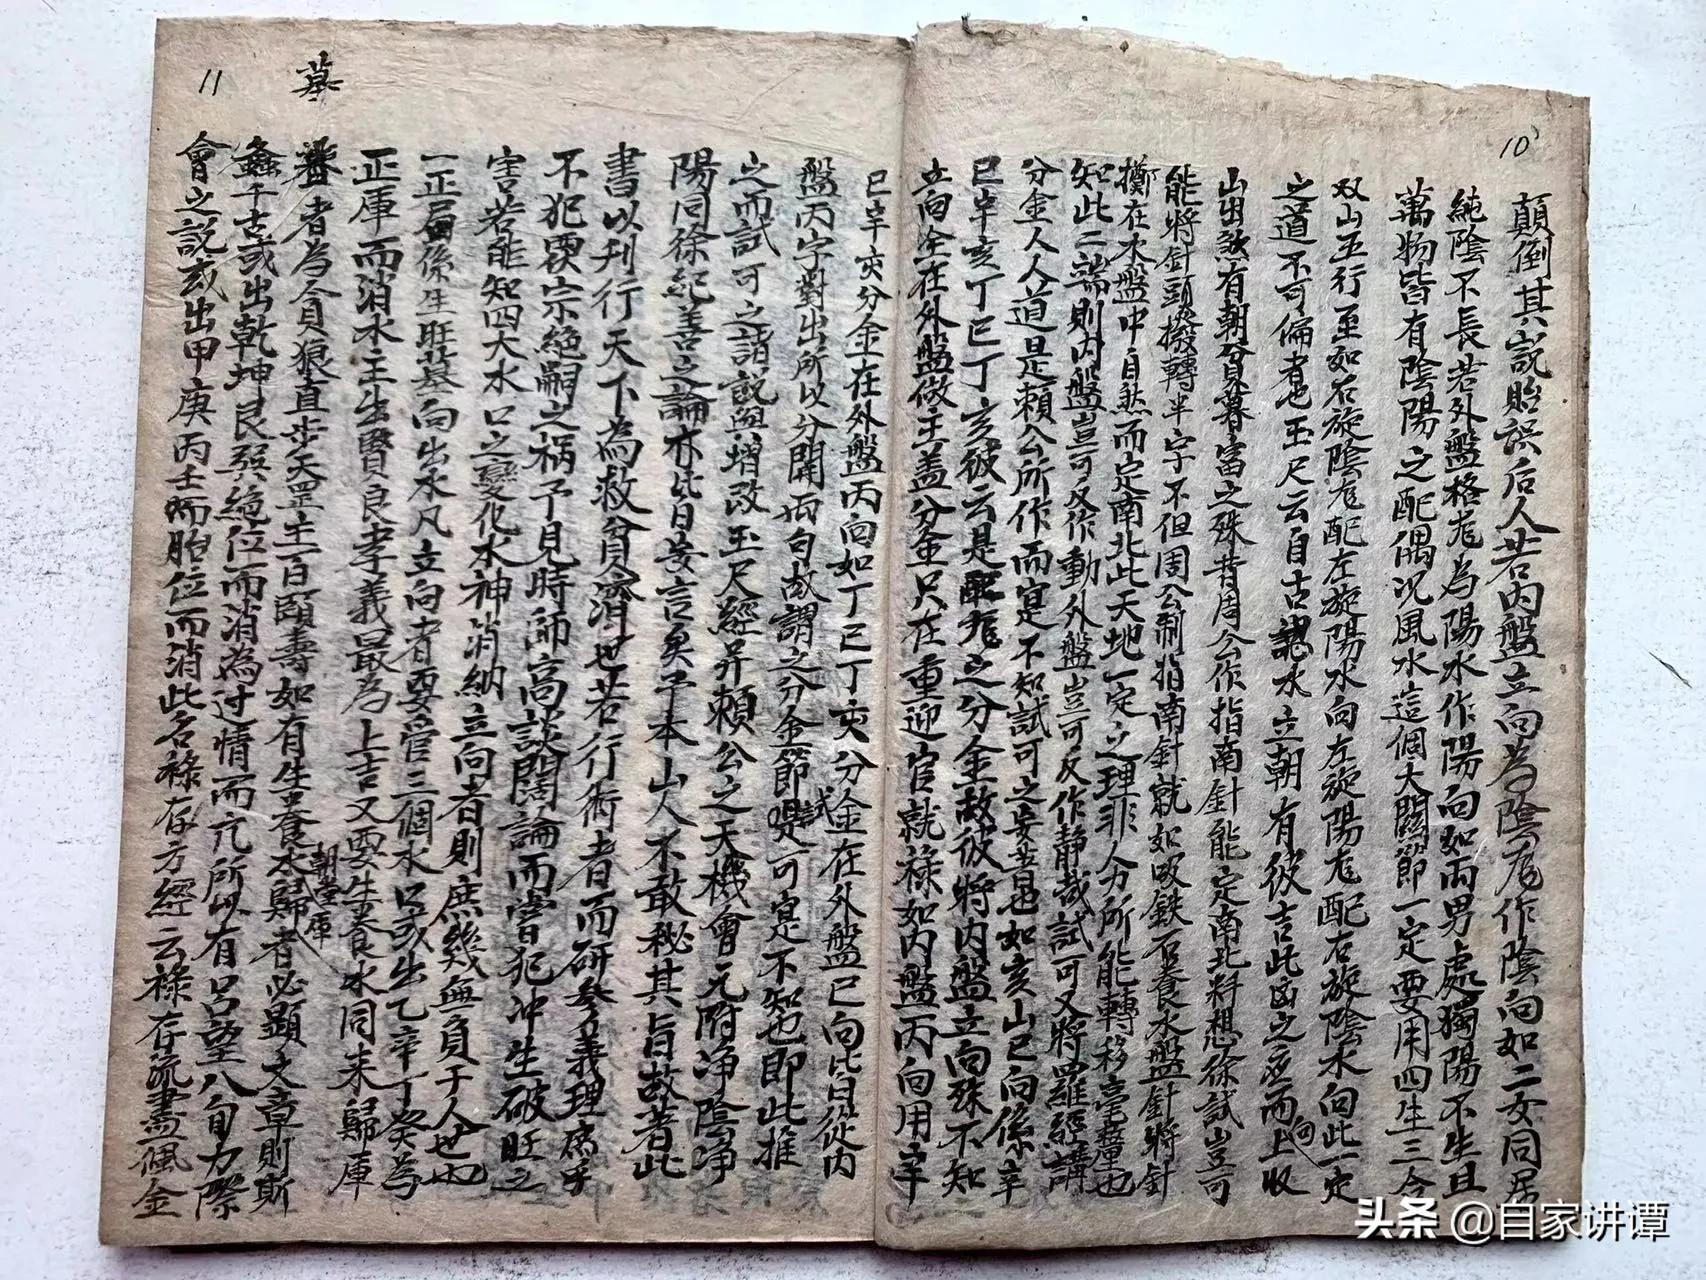 10
顛倒其說貽誤后人若内盤立向為陰龙作陰向如二女同居
純陰不長若外盤格龙為陽水作陽向如兩男處獨陽不生且
萬物皆有陰陽之配偶况風水這個大關節一定要用四生三合
双山五行至如右旋陰龙配左旋陽水向左旋陽龙配右旋陰水向此一定
之道不可偏者也玉尺云自古水立朝有彼吉此凶之应而上向收
山出煞有朝貧暮富之殊昔周公作指南針能定南北料想徐試豈可
能將針頭撥轉半字不但周公制指南針就如吸鉄石養水盤針將針
擲在水盤中自然而定南北此天地一定之理非人力所能轉移毫釐也
知此二端則内盤豈可反作動外盤豈可反作静哉試可又將羅經講
分金人人道是賴公所作而寔不知試可之妄普也如亥山巳向係辛
巳辛亥丁巳丁亥彼云是配龙之分金故彼將内盤立向殊不知
立向全在外盤做主盖分金只在重迎官就祿如内盤丙向用辛
巳辛亥分金在外盤丙向如丁巳丁亥分金在外盤巳向皆曰從内
盤丙字對出所以分開兩向故謂之分金節嘆試可寔不知也即此推
之而試可之諸說盡增改玉尺經并賴公之天機會元附净陰净
陽同徐紀善之論亦皆日妄言矣予本山人不敢秘其旨故著此
書以刋行天下為救貧濟世若行術者而研參義理庶乎
不犯覆宗絶嗣之禍予見時師高談闊論而嘗犯冲生破旺之
害若能知四大水口之變化水神消納立向者則庶幾無負于人世也
一正局係生旺墓向出水凡立向者要管三個水口或出乙辛丁癸為
正庫而消水主生賢良孝義最為上吉又要生養水同来歸庫
朝堂庫
者為貪狼直步天罡主百頤壽如有生養水歸者必顯文章則斯
螽千古或出乾坤艮巽絶位而消為过情而亢所以有呂望八旬方際
會之說或出甲庚丙壬而胎位而消此名祿存方經云祿存流盡佩金
墓
11
头条 @自家讲谭